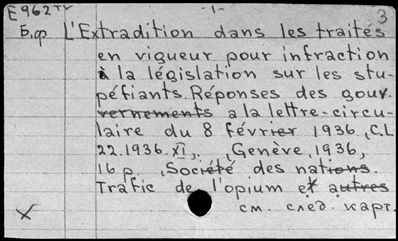 E962TY -1- 3
Б.ф L'Extradition dans les traités
en vigueur pour infraction
à la législation sur les stu-
péfiants. Réponses des gou-
vernements a la lettre-circu-
laire du 8 février 1936, C.L
22.1936.XI,. , Genève, 1936,
16 p., Société des nations.
Trafic de l'opium et autres
X см. след. карт.